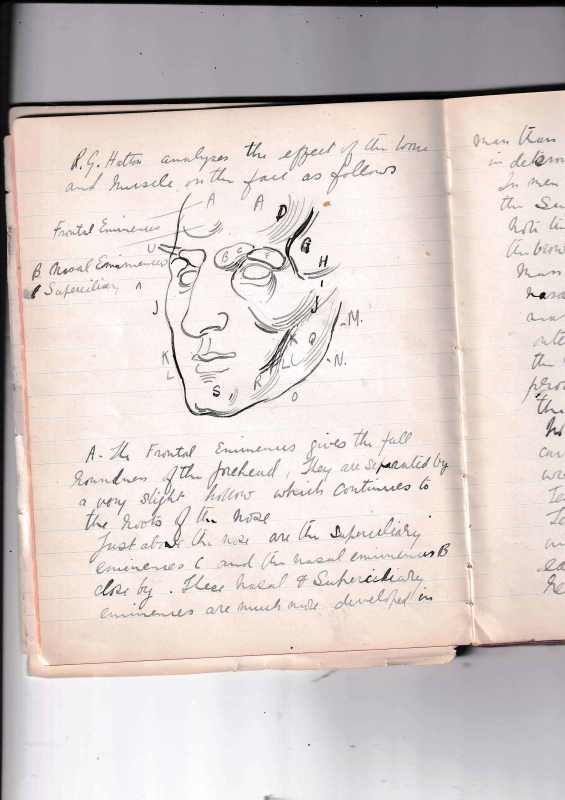 R.G. Hatton analyses the effect of the bone
and muscle on the face as follows
A A D
Frontal Eminences
U
B C F G
B Nasal Eminences
C Superciliary
H
J
J
M.
K
K Q
L
L
N.
S R
O
A. The Frontal Eminences gives the full
roundness of the forehead, They are separated by
a very slight hollow which continues to
the roots of the nose
Just above the nose are the Superciliary
eminences C and the nasal eminences B
close by. These Nasal & Superciliary
eminences are much more developed in
man than
in
In men
the
Note the
the brow
mass
the
the